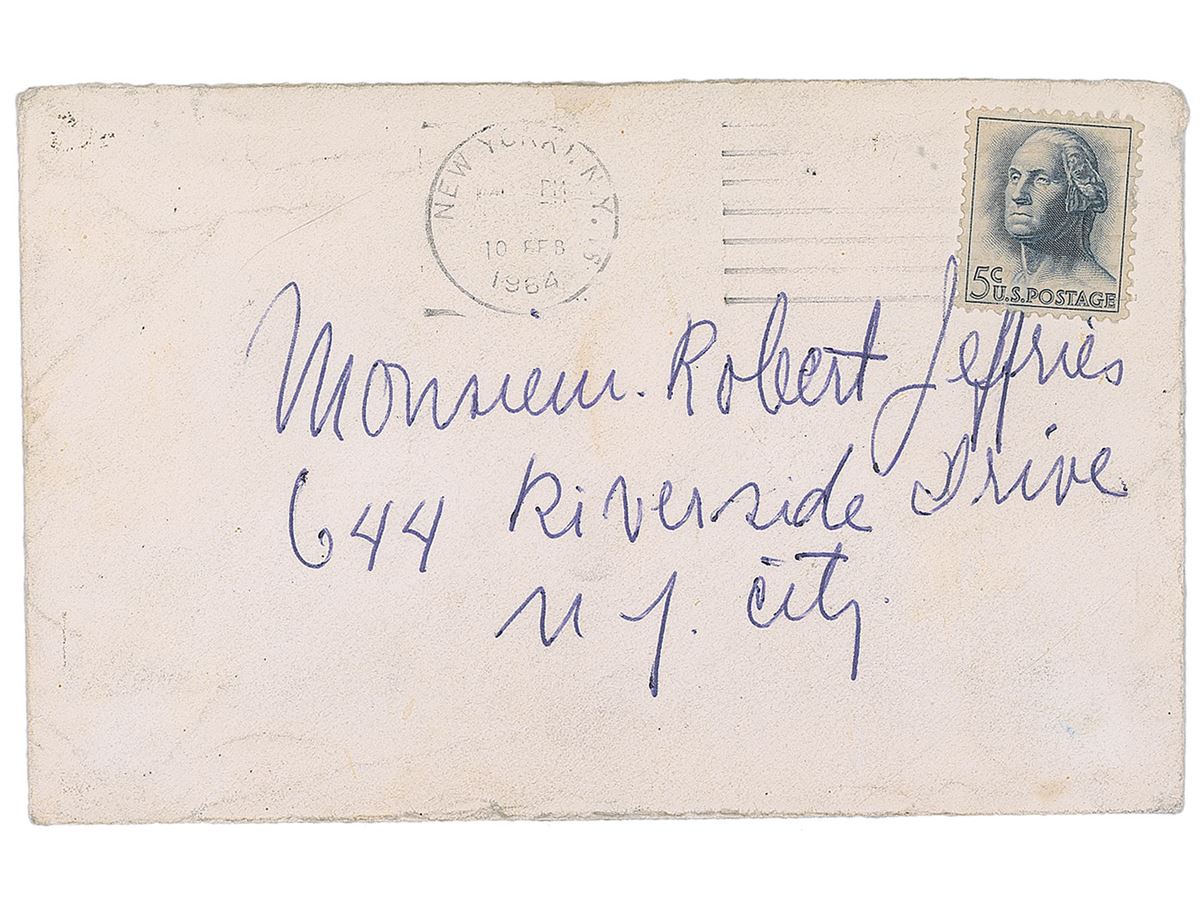 NEW YORK, N.Y.
PM
10 FEB
1964
5c
U.S. POSTAGE
Monsieur. Robert Jeffries
644 Riverside Drive
N Y. City.